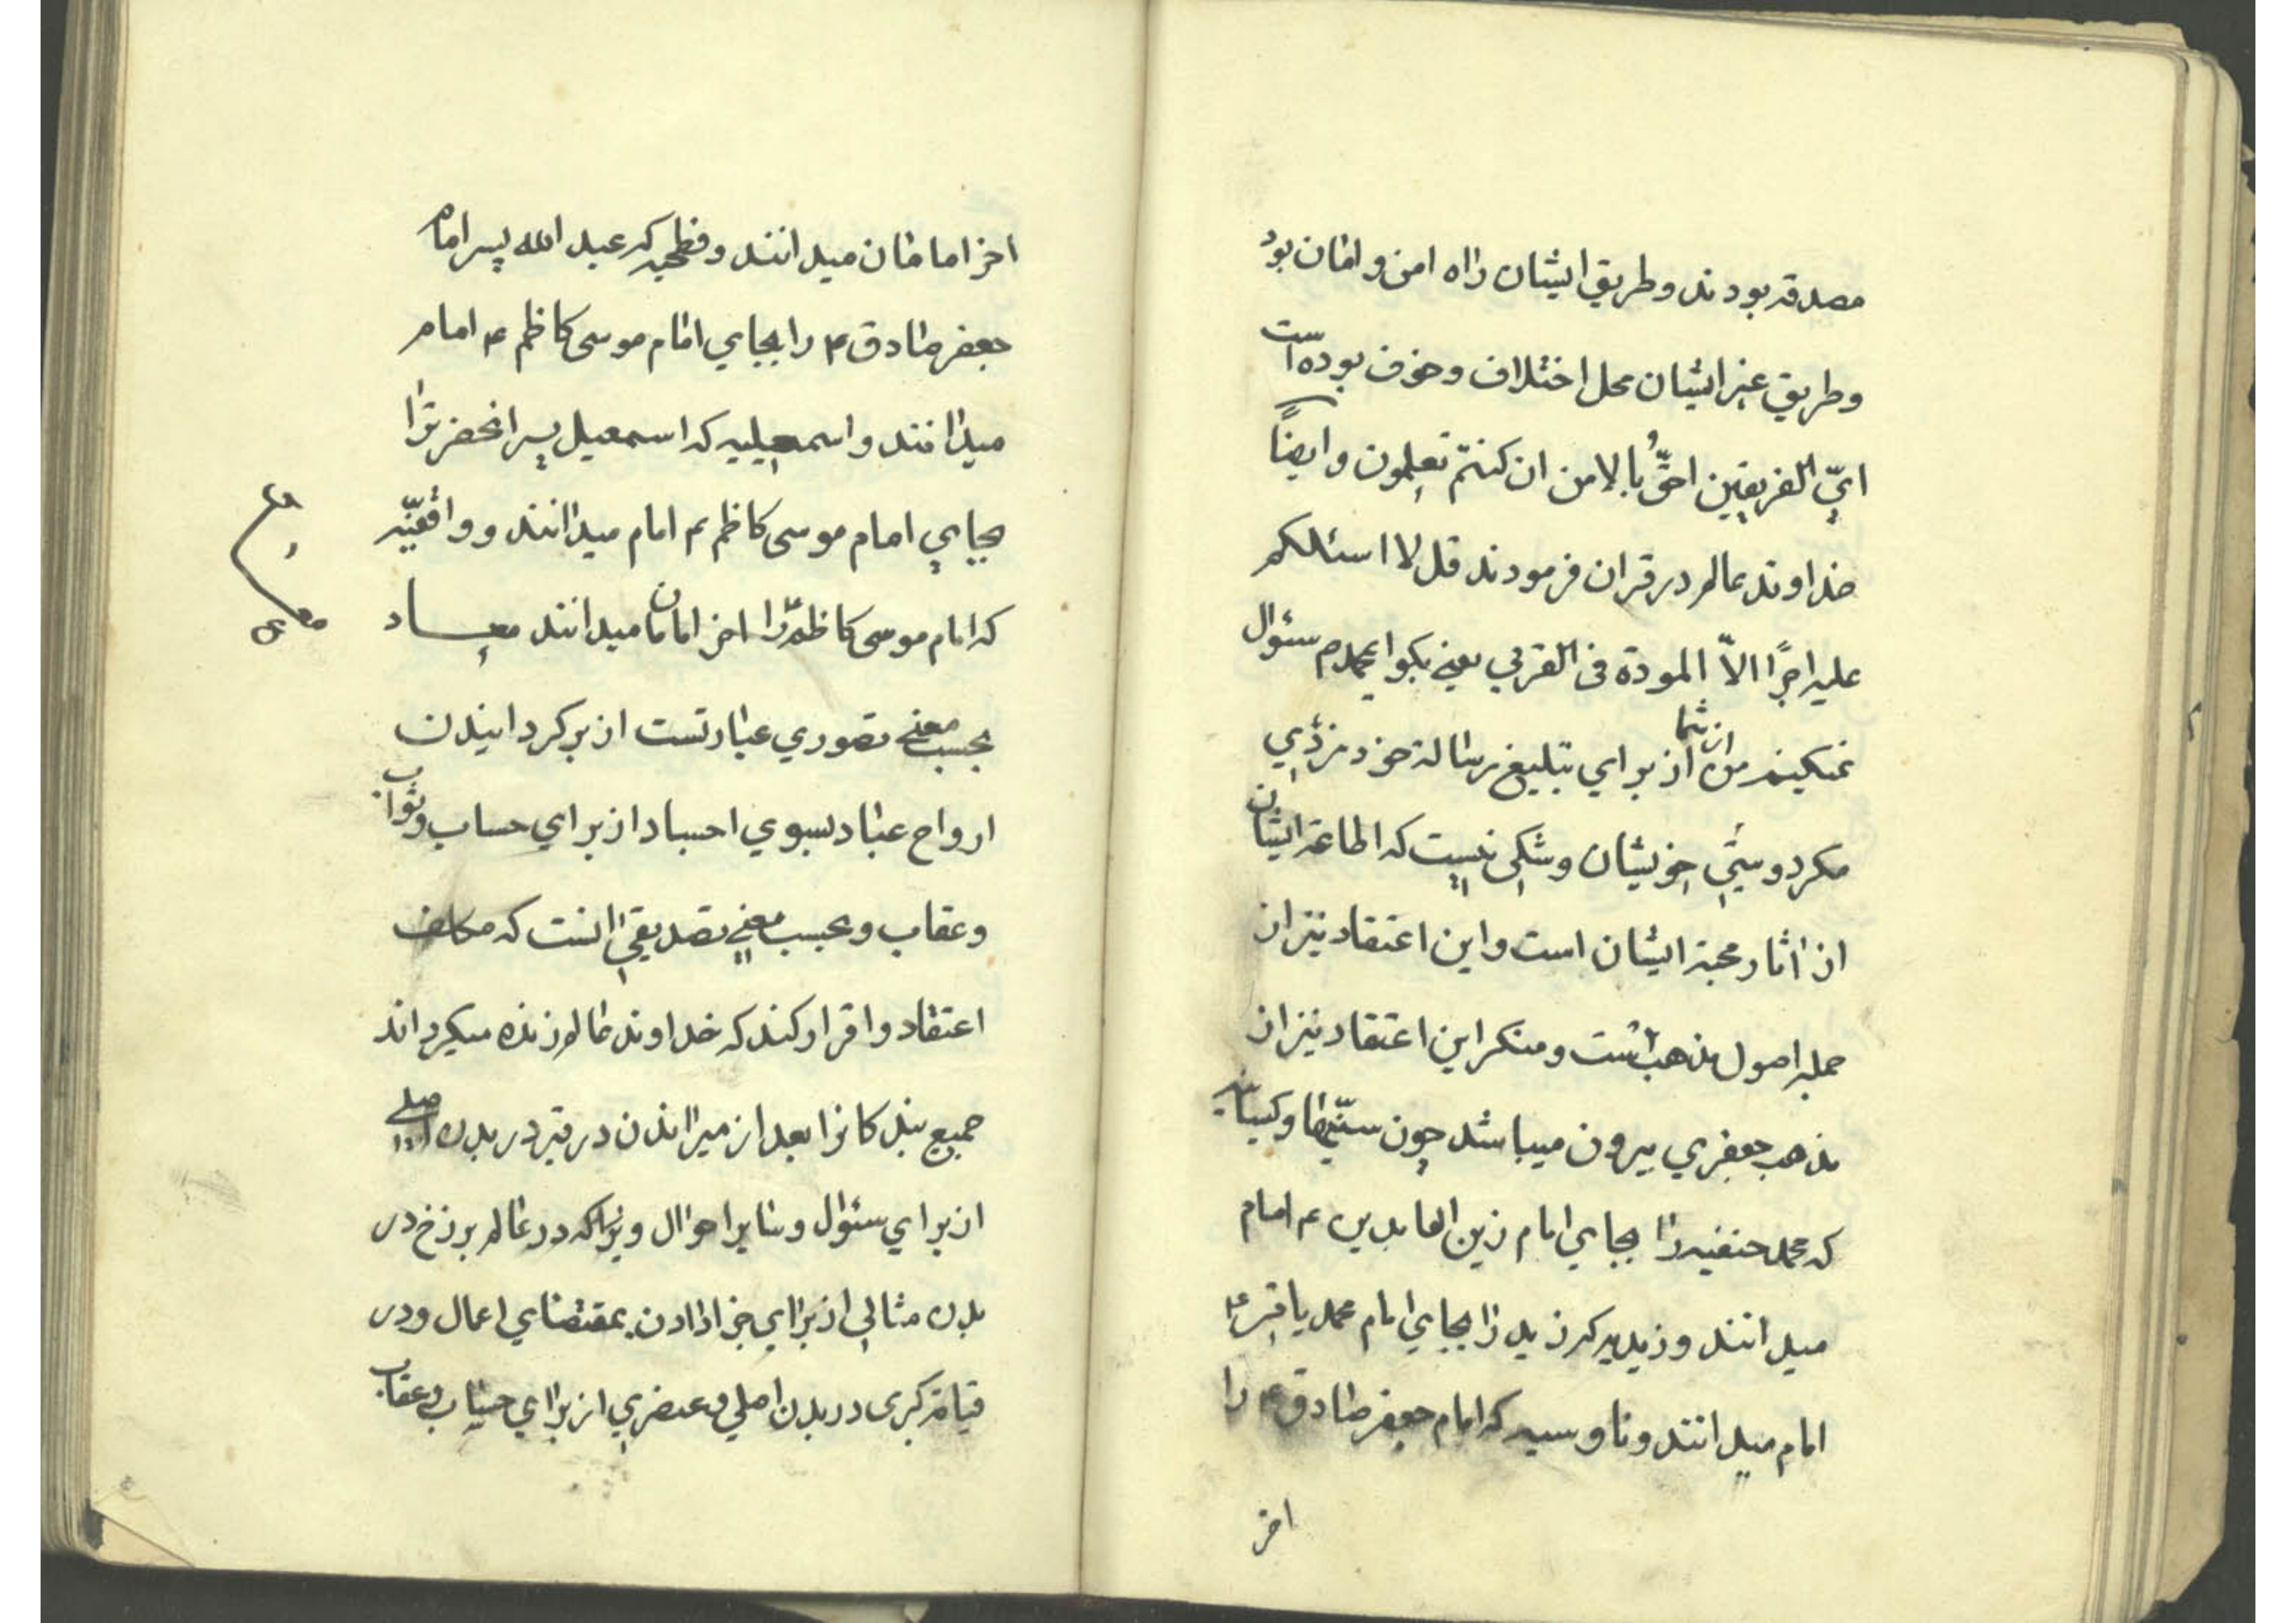 مصدقه بودند وطریق ایشان راه امن و امان بود
وطریق غیر ایشان محل اختلاف وخوف بوده است
ایّ الفریقین احقُّ بالامن ان کنتم تعلمون وایضاً
خداوند عالم در قران فرمودند قل لا اسئلکم
علیه اجرًا الاّ المودة فی القربی یعنی بکو ای محمد ص سئوال
نمیکینم من از شما از برای تبلیغ رسالة خود مزدی
مکر دوستی خویشان وشکی نیست که اطاعة ایشان
از اثار محبة ایشان است واین اعتقاد نیز از
جمله اصول مذهب است ومنکر این اعتقاد نیز از
مذهب جعفری بیرون میباشد چون سنّیها وکیسانیه
که محمد حنفیه را بجای امام زین العابدین ع امام
میدانند وزیدیه که زید را بجای امام محمد باقر ع
امام میدانند وناوسیه که امام جعفر صادق ع را
اخر
اخر امامان میدانند وفطحیه که عبد الله پسر امام
جعفر صادق ع را بجای امام موسی کاظم ع امام
میدانند واسمعیلیه که اسمعیل پسر انحضرترا
بجای امام موسی کاظم ع امام میدانند وواقفیّه
که امام موسی کاظم را اخر امامان میدانند معاد
بحسب معنی تصوری عبارتست از بر کردانیدن
ارواح عباد بسوی اجساد از برای حساب وثواب
وعقاب وبحسب معنی تصدیقی انست که مکلف
اعتقاد واقرار کند که خداوند عالم زنده میکرداند
جمیع بندکانرا بعد از میراندن در قبر در بدن اصلی
از برای سئوال وسایر احوال ویراکه در عالم برزخ در
بدن مثالی از برای جزا دادن بمقتضای اعمال ودر
قیامة کبری در بدن اصلی وعنصری از برای حساب وعقاب